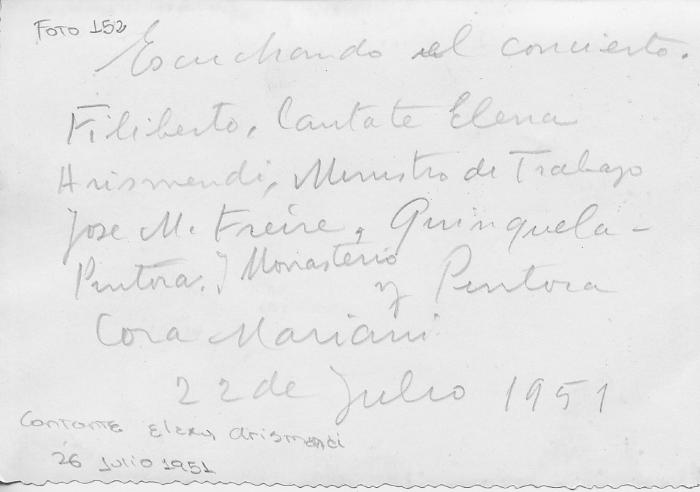 FOTO 152
Escuchando el concierto.
Filiberto, Cantate Elena
Arismendi, Ministro de Trabajo
Jose M. Freire, Quinquela -
Pintora. J Monasterio
y Pintora
Cora Mariani
22 de Julio 1951
Cantante Elena Arismendi
26 Julio 1951